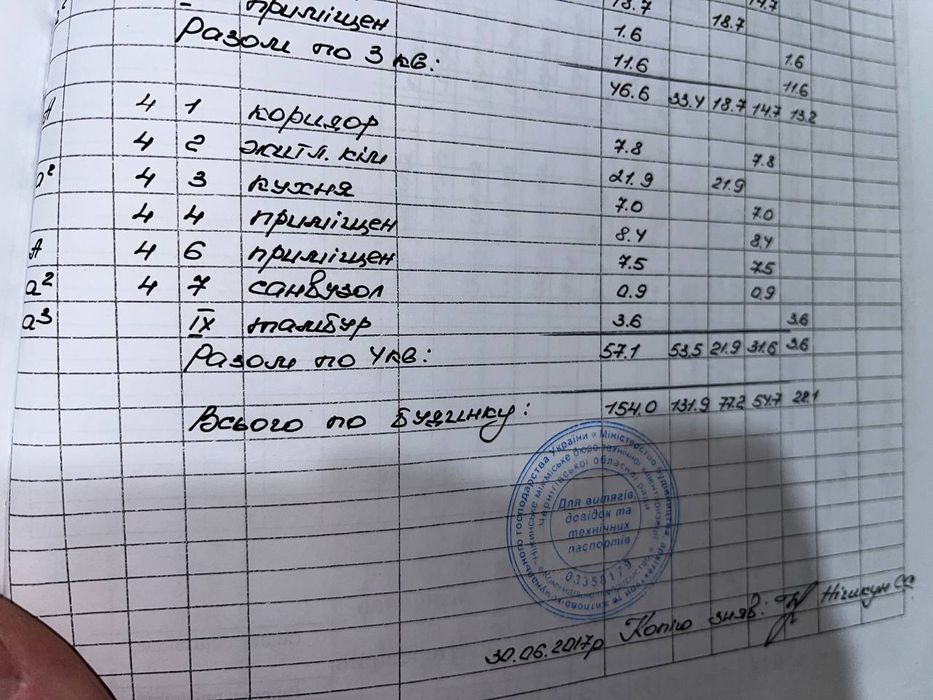 приміщен 18.7 18.7 14.7
Разом по 3 кв: 1.6 1.6
11.6 11.6
46.6 33.4 18.7 14.7 13.2
А 4 1 коридор
4 2 житл. кім 7.8 7.8
а² 4 3 кухня 21.9 21.9
4 4 приміщен 7.0 7.0
8.4 8.4
А 4 6 приміщен 7.5 7.5
а² 4 7 санвузол 0.9 0.9
а³ IX тамбур 3.6 3.6
Разом по 4 кв: 57.1 53.5 21.9 31.6 3.6
Всього по будинку: 154.0 131.9 77.2 54.7 22.1
Для витягів,
довідок та
технічних
паспортів
03358179
30.06.2017р Копію зняв: